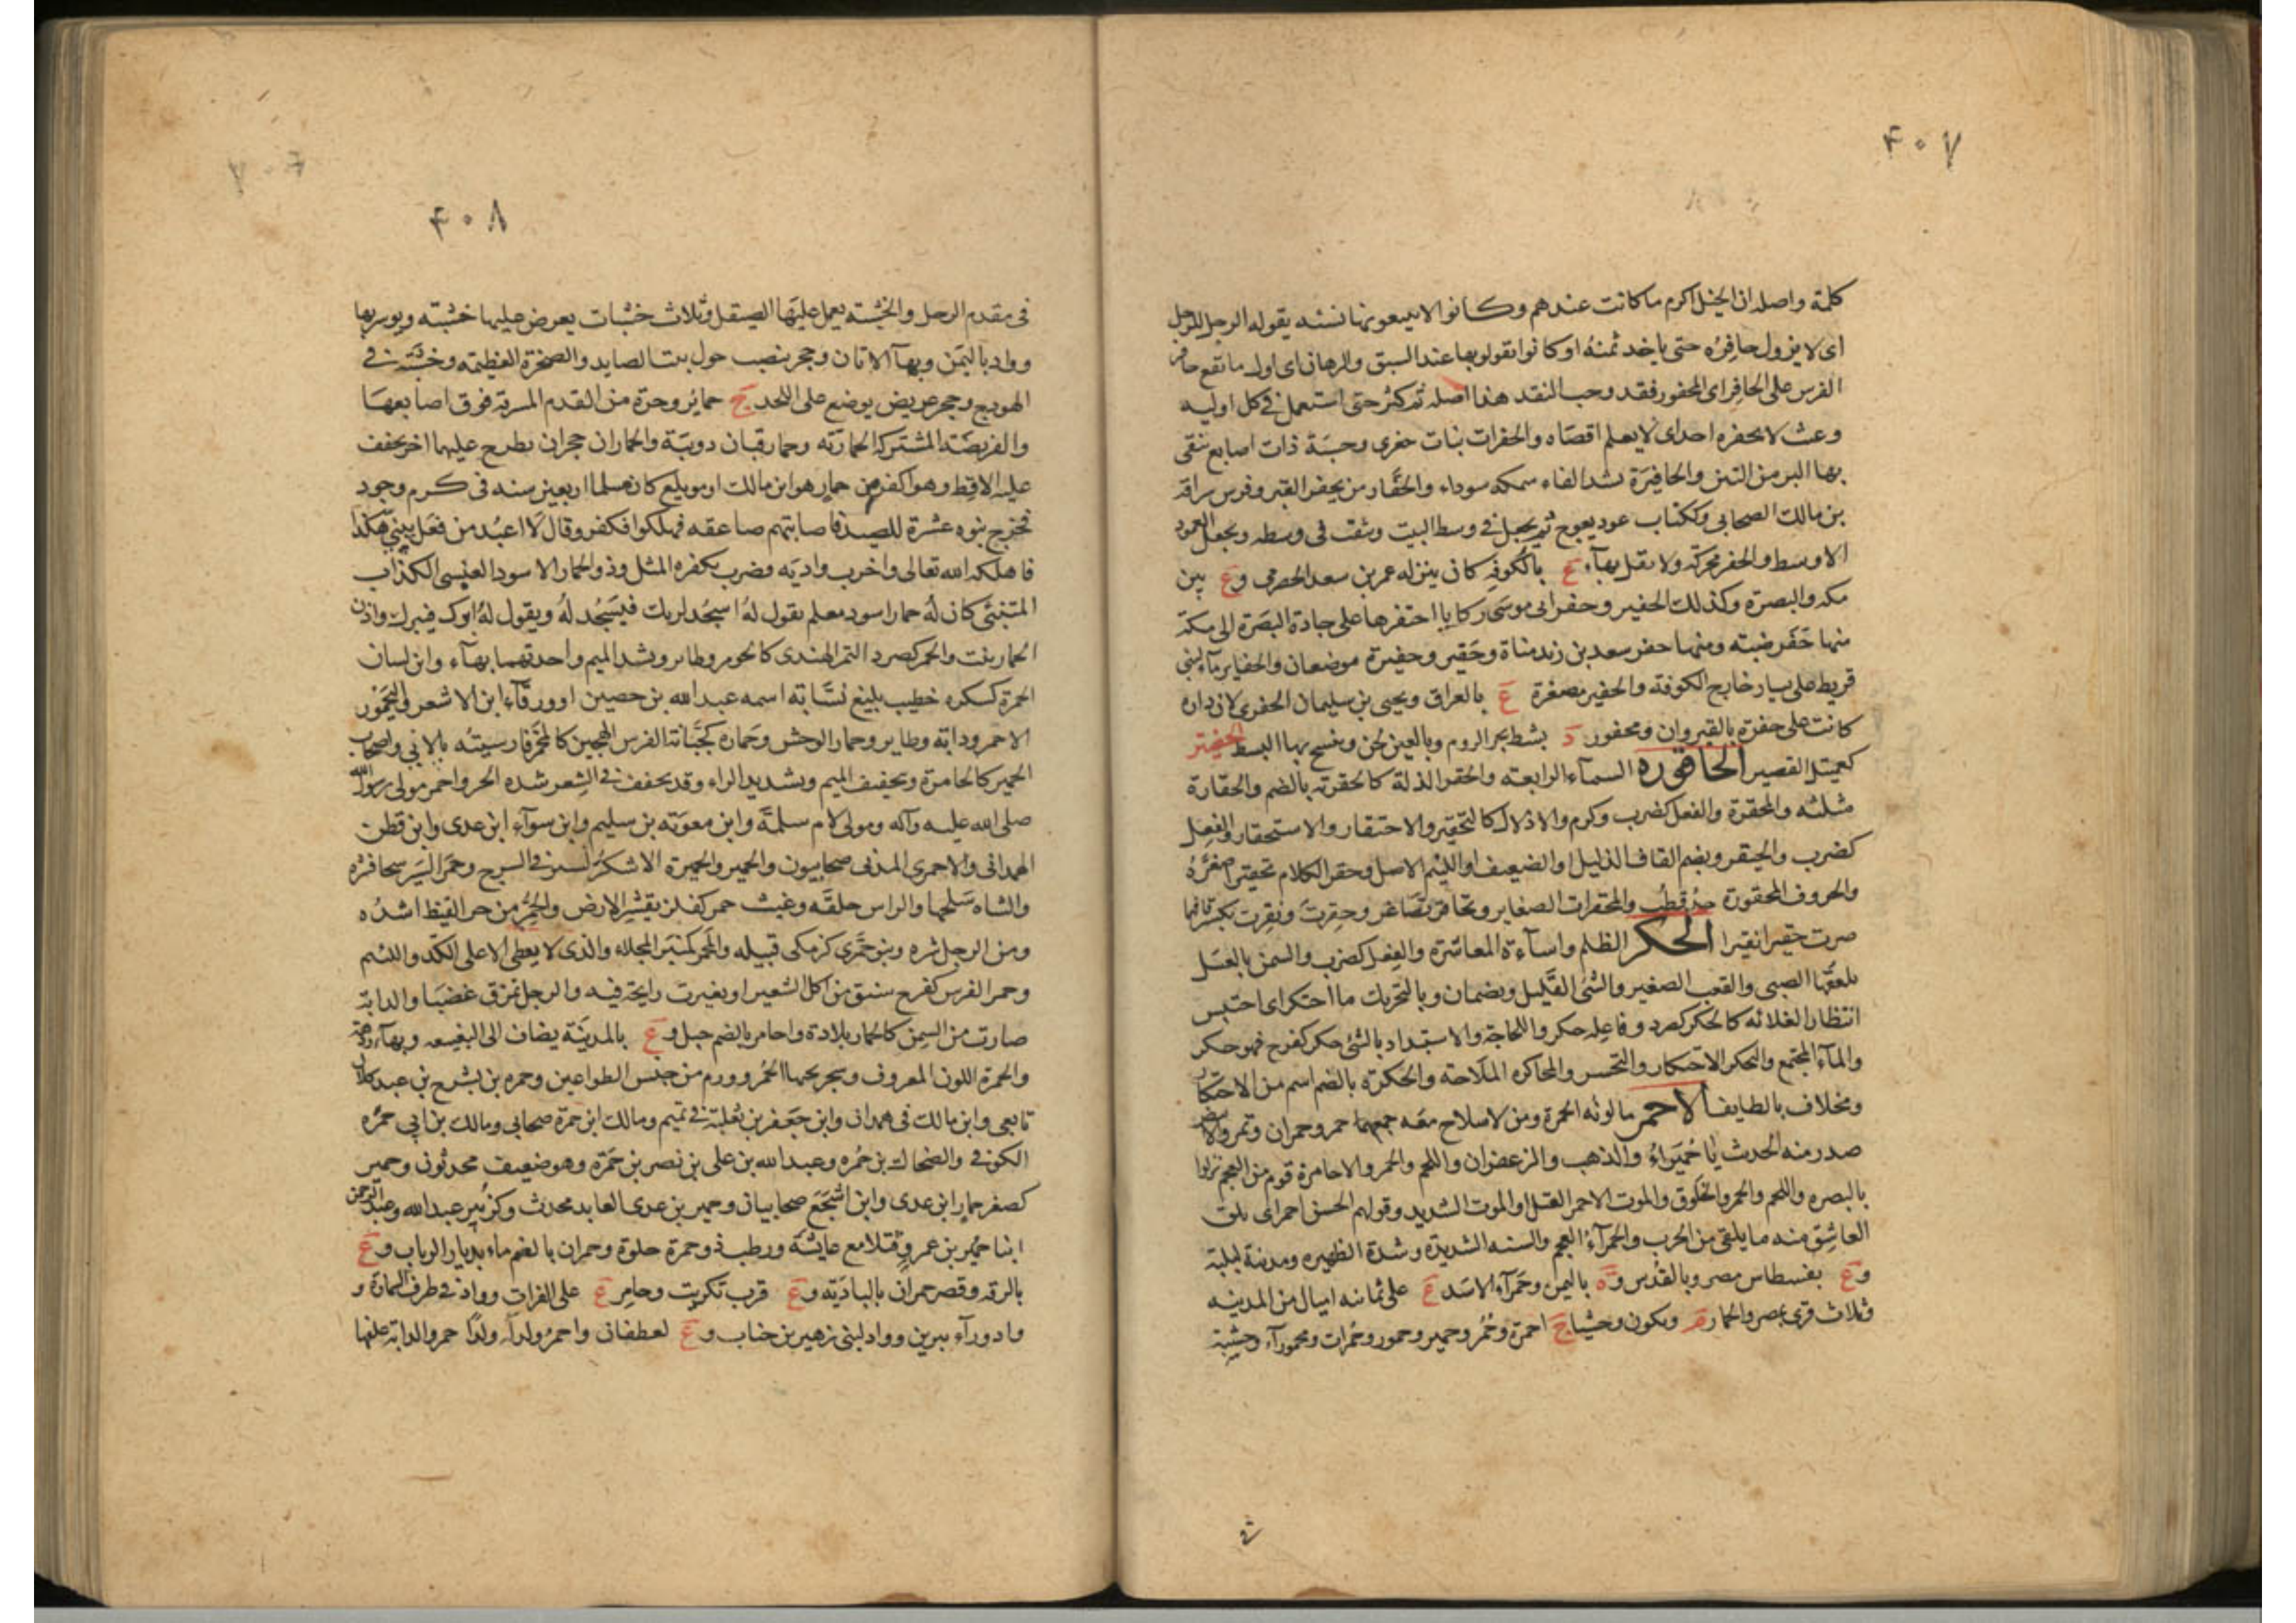 ۴۰۷
كلمة واصله ان الخيل اكرم ما كانت عندهم وكانوا لا يبيعونها نسئه يقوله الرجل للرجل
اى لا يزول حافره حتى ياخد ثمنه او كانوا يقولوبها عند السبق والرهان اى اول ما تقع حافر
الفرس على الحافر اى المحفور فقد وجب النقد هذا اصله ثم كثر حتى استعمل فى كل اوليه
وغث لا يحفره احد اى لا يعلم اقصاه والحفرات نبات حفرى وخشبة ذات اصابع ينقى
بها البر من التبن والحافيرة بشد الفاء سمكه سوداء والحفار من يحفر القبر وفرس سراقه
بن مالك الصحابى وككتاب عود يعوج ثم يجعل فى وسط البيت ويثقب فى وسطه ويجعل العمود
الاوسط والحفر محركة ولا تقل بهآء ع بالكوفه كان ينزله عمر بن سعد الحفرى وع بين
مكه والبصرة وكذلك الحفير وحفر ابى موسى ركايا احتفرها على جادة البصرة الى مكة
منها حفر ضبته ومنها حفر سعد بن زيد مناة وحفير وحفيرة موضعان والحفاير مآء لبنى
قريط على يسار خارج الكوفة والحفير مصغرة ع بالعراق ويحيى بن سليمان الحفرى لان داره
كانت على حفرة بالقيروان ومحفور د بشط بحر الروم وبالعين لحن وينسج بها البسط الحفيتر
كعميتل القصير الحاقوره السمآء الرابعته والحقر الذلة كالحقرية بالضم والحقارة
مثلثه والمحقرة والفعل كضرب وكرم والاذلال كالتحقير والاحتقار والاستحقار والفعل
كضرب والحيقر وبضم القاف الذليل او الضعيف او اللئيم الاصل وحقر الكلام تحقيرا صغره
والحروف المحقورة جد قطب والمحقرات الصغاير وتحاقر تصاغر وحقرت ونقرت بكسر قافهما
صرت حقيرا نقيرا الحكر الظلم واسآءة المعاشرة والفعل كضرب والسمن بالعسل
يلعقها الصبى والقعب الصغير والشئ القليل ويضمان وبالتحريك ما احتكر اى احتبس
انتظارا لغلائه كالحكر كصرد وفاعله حكر واللجاجة والاستبداد بالشئ حكر كفرح فهو حكر
والمآء المجتمع والتحكر الاحتكار والتحسر والمحاكره الملاحة والحكرة بالضم اسم من الاحتكار
ومخلاف بالطايف الاحمر ما لونه الحمرة ومن لا سلاح معه جمعهما حمر وحمران وتمر والابيض
صدر منه الحدث يا حميراء والذهب والزعفران واللحم والخمر والاحامرة قوم من العجم نزلوا
بالبصره واللحم والخمر والخلوق والموت الاحمر القتل او الموت الشديد وقولهم الحسن احمر اى يلقى
العاشق منه ما يلقى من الحرب والحمرآء العجم والسنه الشديدة وشدة الظهيره ومدينة لبلبة
وع بفسطاس مصر وبالقدس وة باليمن وحمرآء الاسد ع على ثمانه اميال من المدينه
وثلاث قرى بمصر والحمار م ويكون وحشيا ج احمرة وحمر وحمير وحمور وحمرات ومحمورآء وخشبة
۴۰۸
فى مقدم الرحل والخشبته يعمل عليها الصيقل وثلاث خشبات يعرض عليها خشبته ويوسر بها
وواد باليمن وبهآ الاتان وحجر ينصب حول بيت الصايد والصخرة العظيمه وخشبة فى
الهودج وحجر عريض يوضع على اللحد ج حمائر وحرة من القدم المسرية فوق اصابعها
والفريضة المشتركة الحماريه وحمار قبان دويبة والحماران حجران يطرح عليهما اخر يجفف
عليه الاقط وهو اكفر من حمار هو ابن مالك او مويلع كان مسلما اربعين سنه فى كرم وجود
فخرج بنوه عشرة للصيد فاصابتهم صاعقه فهلكوا فكفر وقال لا اعبد من فعل ببنى هكذا
فاهلكه الله تعالى واخرب واديه وضرب بكفره المثل وذو الحمار الاسود العبسى الكذاب
المتنبئ كان له حمار اسود معلم يقول له اسجد لربك فيسجد له ويقول له ابرك فيبرك واذن
الحمار نبت والحمر كصرد التمر الهندى كالحومر وطاير وبشد الميم واحدتهما بهآء وابن لسان
الحمرة كسكره خطيب بليغ نسابه اسمه عبد الله بن حصين او ورقآء ابن الاشعر واليحمور
الاحمر ودابه وطاير وحمار الوحش وحماره كجبانة الفرس الهجين كالمحمر فارسيته بالانى واصحاب
الحمير كالحامرة وتخفيف الميم وبشديد الراء وقد يخفف فى الشعر شده الحر واحمر مولى رسول الله
صلى الله عليه وآله ومولى لام سلمة وابن معويه بن سليم وابن سوآء ابن عدى وابن قطن
الهمدانى والاحمرى المدنى صحابيون والحمير والحميرة الاشكز لسير فى السرج وحمر السير سحا قشره
والشاه سلخها والراس حلقه وغيث حمر كفلز يقشر الارض والحمر من حر القيظ اشده
ومن الرجل شره وبنو حمرى كزمكى قبيله والمحمر كمنبر المجلاء والذى لا يعطى الا على الكد واللئيم
وحمر الفرس كفرح سنق من اكل الشعير او تغيرت رايحة فيه والرجل تحرق غضبا والدابة
صارت من السمن كالحمار بلادة واحامر بالضم جبل وع بالمدينة يضاف الى البغيبغه وبهآء ردهة
والحمرة اللون المعروف وشجر يحبها الحمر وورم من جنس الطواعين وحمره بن يشرح بن عبد كلال
تابعى وابن مالك فى همدان وابن جعفر بن ثعلبة فى تميم ومالك ابن حمرة صحابى ومالك بن ابى حمره
الكوفى والضحاك بن حمره وعبد الله بن على بن نصر بن حمرة وهو ضعيف محدثون وحمير
كصغر حمار ابن عدى وابن اشجع صحابيان وحمير بن عدى العابد محدث وكزبير عبد الله وعبد الرحمن
ابنا حمير بن عمرو قتلا مع عايشة ورطب ذو حمرة حلوة وحمران بالضم ماء بديار الرباب وع
بالرقه وقصر حمران بالبادية وع قرب تكريت وحامر ع على الفرات وواد فى طرف السماوة و
وادورآء يبرين وواد لبنى زهير بن جناب وع لغطفان واحمر ولدآ ولد حمر والدابة علفها